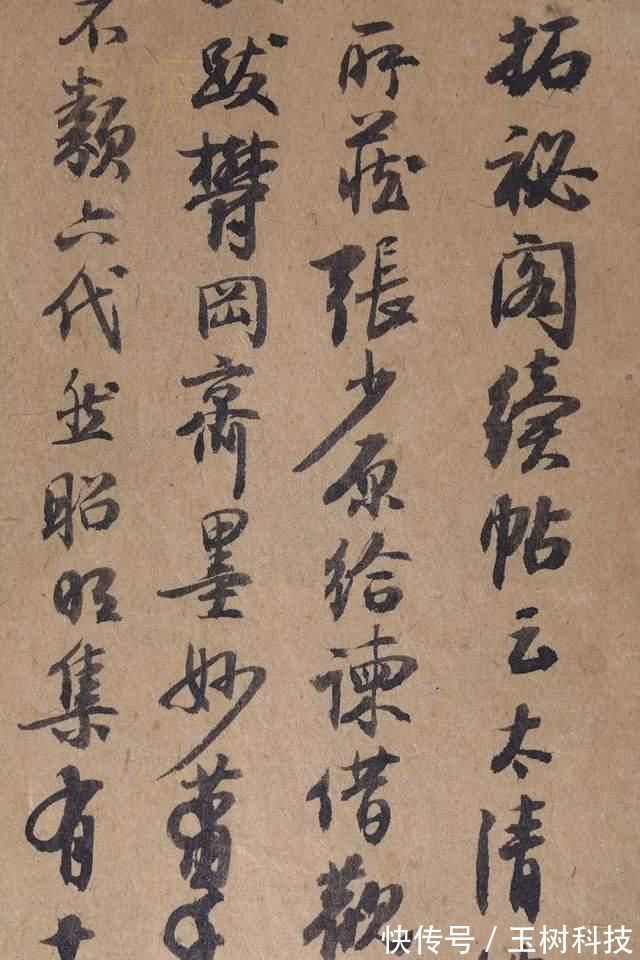 拓祕閣續帖云太清
所藏張少原給諫借觀
跋欎岡齋墨妙
不類六代然昭明集有十
快传号／玉树科技